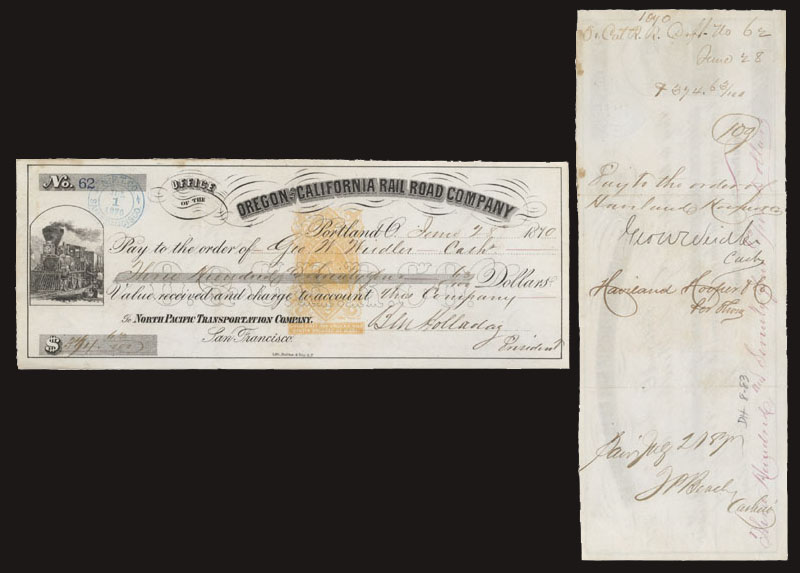 No. 62
OFFICE
OF THE
OREGON AND CALIFORNIA RAIL ROAD COMPANY
Portland O. June 28 1870
Pay to the order of Geo W Weidler Cashr
Three Hundred & Seventy four 63 Dollars
Value received and charge to account this Company
To NORTH PACIFIC TRANSPORTATION COMPANY.
San Francisco.
Ben Holladay
President
$ 374 63/100
1870
Or. Cal R. R. Drft. No 62
June 28
$ 374 63/100
109
Pay to the order of
Haviland Hooper & Co
Geo W Weidler
Cash
Haviland Hooper & Co
DH 8-83
Beach
Cashier